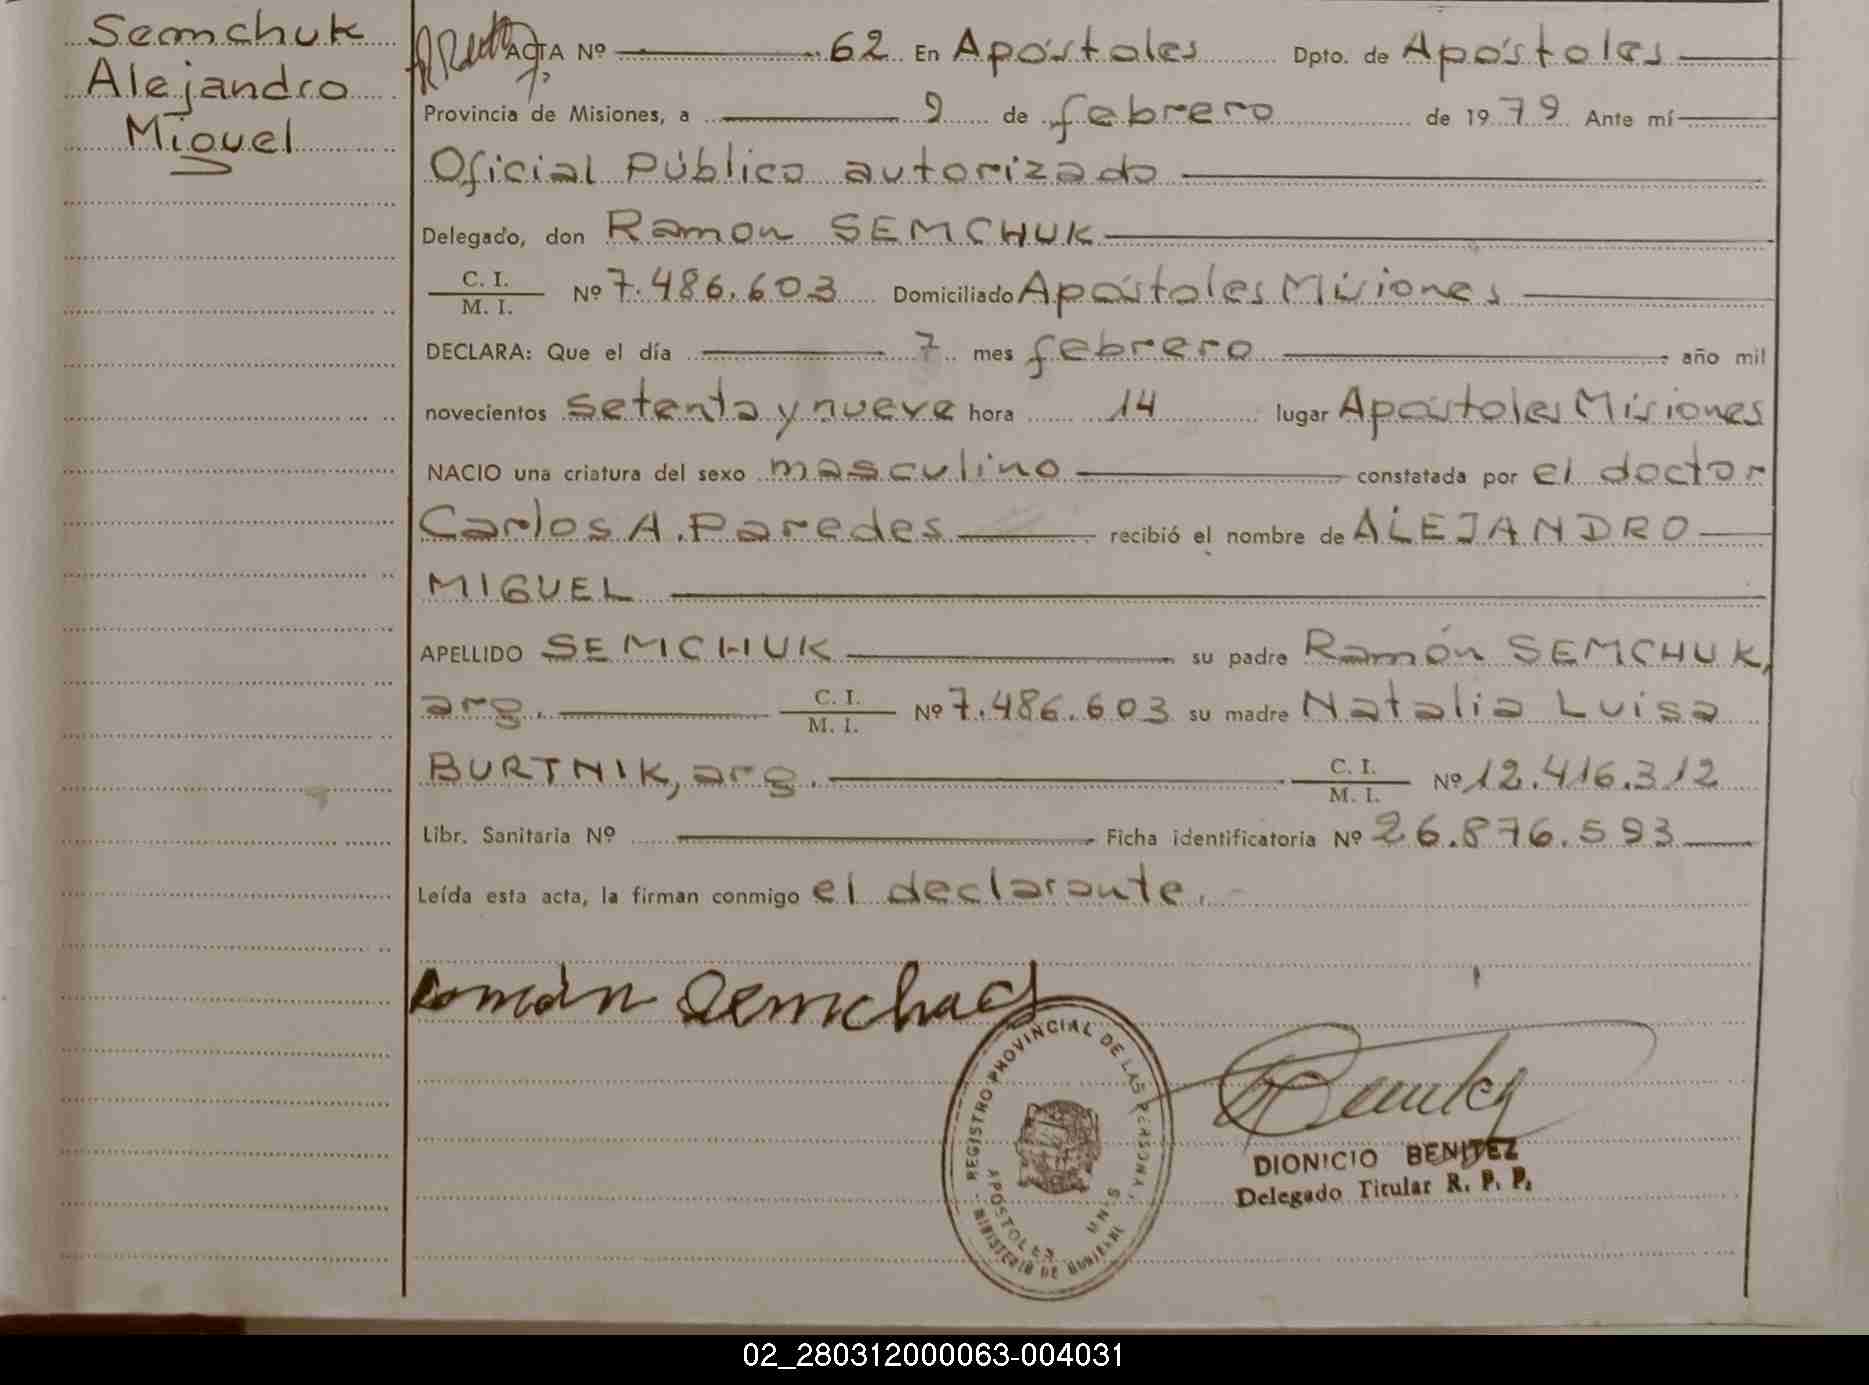 Semchuk
Alejandro
Miguel
ACTA Nº 62 En Apóstoles Dpto. de Apóstoles
Provincia de Misiones, a 9 de febrero de 1979 Ante mí
Oficial Público autorizado
Delegado, don Ramon SEMCHUK
C. I.
M. I. Nº 7.486.603 Domiciliado Apóstoles Misiones
DECLARA: Que el día 7 mes febrero año mil
novecientos setenta y nueve hora 14 lugar Apóstoles Misiones
NACIO una criatura del sexo masculino constatada por el doctor
Carlos A. Paredes recibió el nombre de ALEJANDRO
MIGUEL
APELLIDO SEMCHUK su padre Ramón SEMCHUK,
arg. C. I. M. I. Nº 7.486.603 su madre Natalia Luisa
BURTNIK, arg. C. I. M. I. Nº 12.416.312
Libr. Sanitaria Nº Ficha identificatoria Nº 26.876.593
Leída esta acta, la firman conmigo el declarante.
REGISTRO PROVINCIAL DE LAS PERSONAS
APOSTOLES MNES
MINISTERIO DE GOBIERNO
DIONICIO BENITEZ
Delegado Titular R. P. P.
02_280312000063-004031